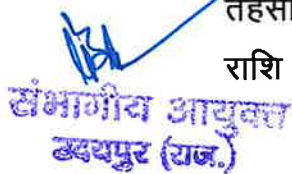 तहसी
राशि
संभागीय आयुक्त
उदयपुर (राज.)